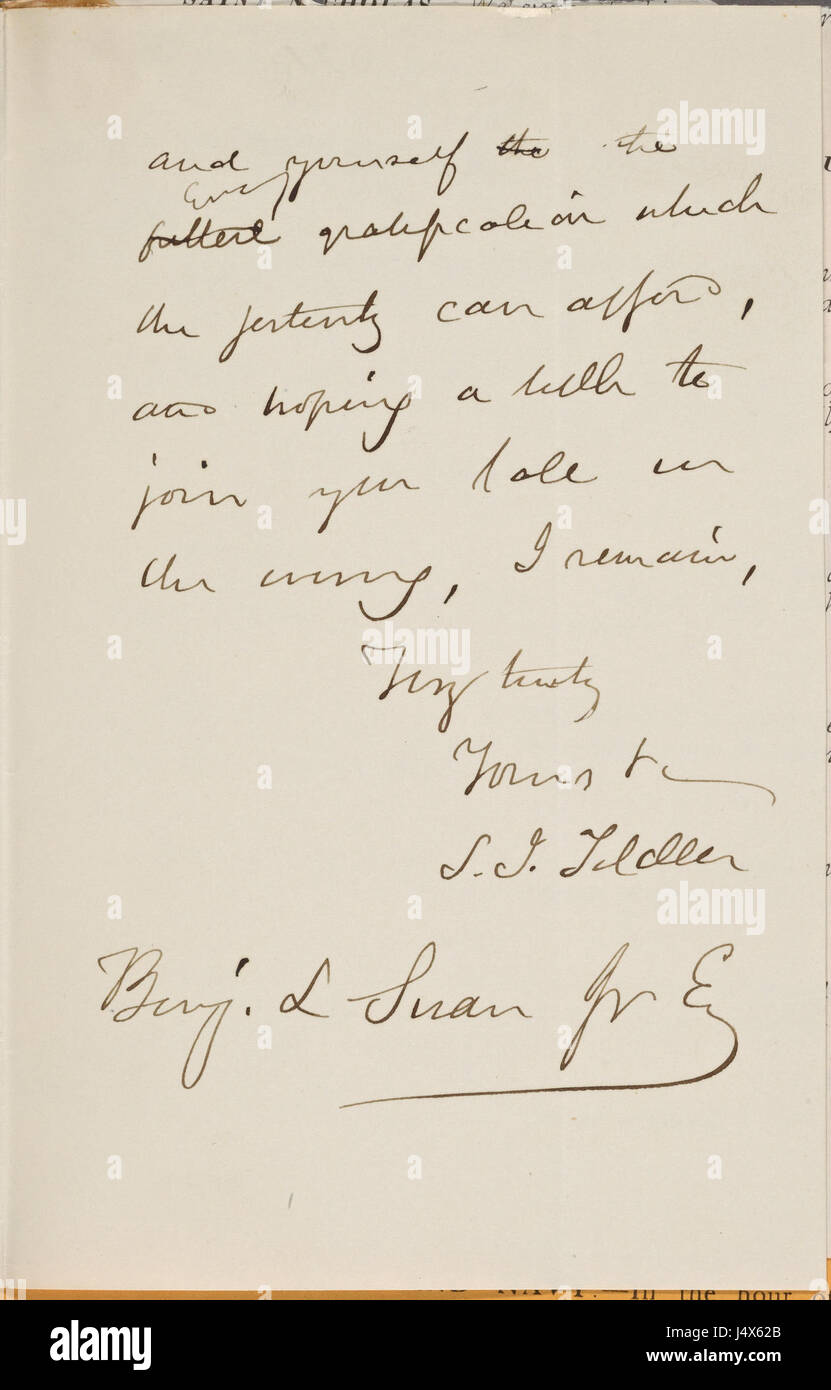 SAINT NICHOLAS
and yourself the the
Every
fullest gratification which
the festivity can afford,
and hoping a little to
join you late in
the evening, I remain,
Very truly
Yours &c
S. J. Tilden
Benj. L Swan Jr Esq
NAVY.—In the hour
alamy
a
alamy
Image ID: J4X62B
www.alamy.com